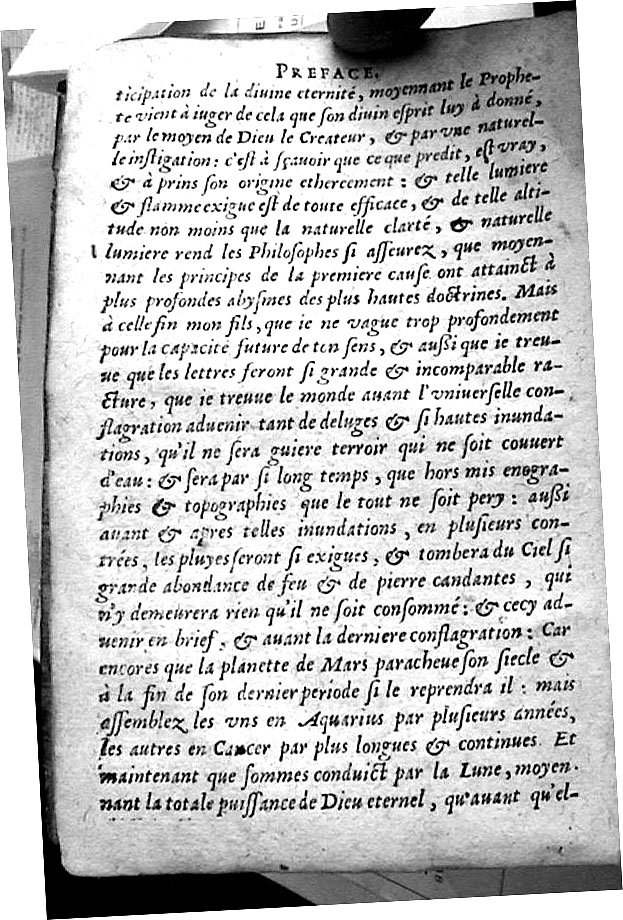 PREFACE.
ticipation de la divine eternité, moyennant le Prophe-
te vient à iuger de cela que son divin esprit luy à donné,
par le moyen de Dieu le Createur, & par vne naturel-
le instigation: c'est à sçavoir que ce que predit, est vray,
& à prins son origine ethereement: & telle lumiere
& flamme exigue est de toute efficace, & de telle alti-
tude non moins que la naturelle clarté, & naturelle
lumiere rend les Philosophes si asseurez, que moyen-
nant les principes de la premiere cause ont attainct à
plus profondes abysmes des plus hautes doctrines. Mais
à celle fin mon fils, que ie ne vague trop profondement
pour la capacité future de ton sens, & aussi que ie treu-
ue que les lettres feront si grande & incomparable ia-
cture, que ie treuue le monde auant l'vniuerselle con-
flagration aduenir tant de deluges & si hautes inunda-
tions, qu'il ne sera guiere terroir qui ne soit couuert
d'eau: & sera par si long temps, que hors mis enogra-
phies & topographies que le tout ne soit pery: aussi
auant & apres telles inundations, en plusieurs con-
trées, les pluyes seront si exigues, & tombera du Ciel si
grande abondance de feu & de pierre candantes, qui
n'y demeurera rien qu'il ne soit consommé: & cecy ad-
uenir en brief, & auant la derniere conflagration: Car
encores que la planette de Mars paracheue son siecle &
à la fin de son dernier periode si le reprendra il: mais
assemblez les vns en Aquarius par plusieurs années,
les autres en Cancer par plus longues & continues. Et
maintenant que sommes conduict par la Lune, moyen-
nant la totale puissance de Dieu eternel, qu'auant qu'el-